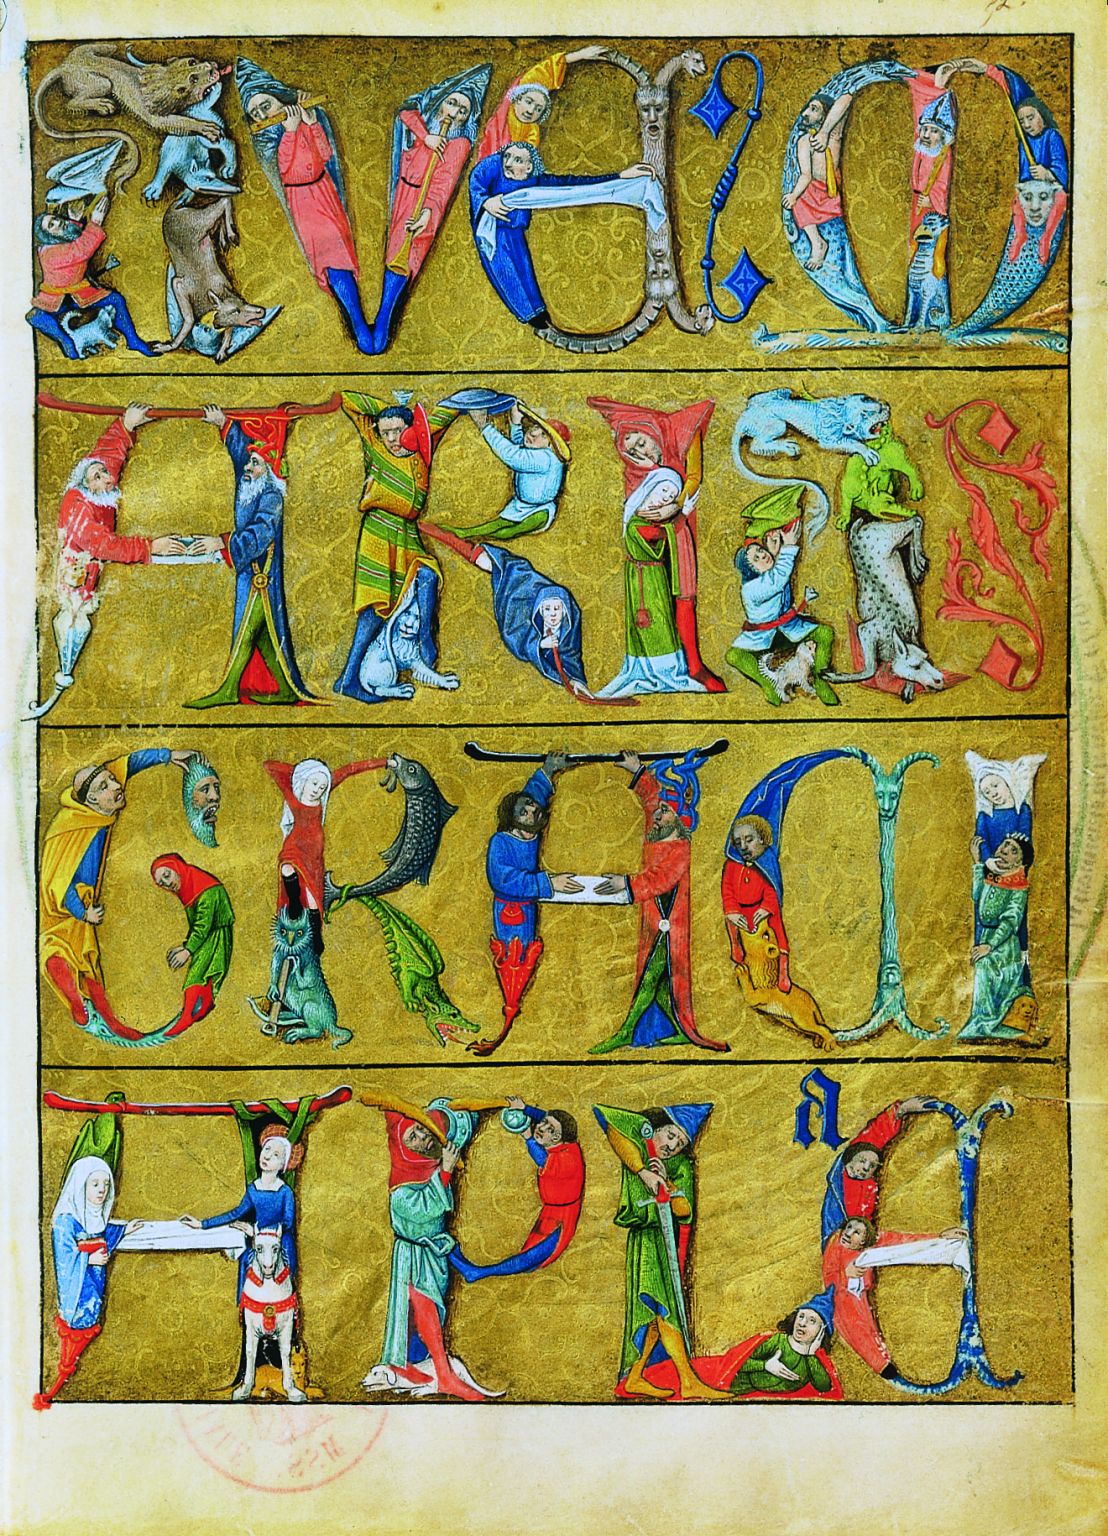 AVE : M
ARIA
GRACI
A PLE A